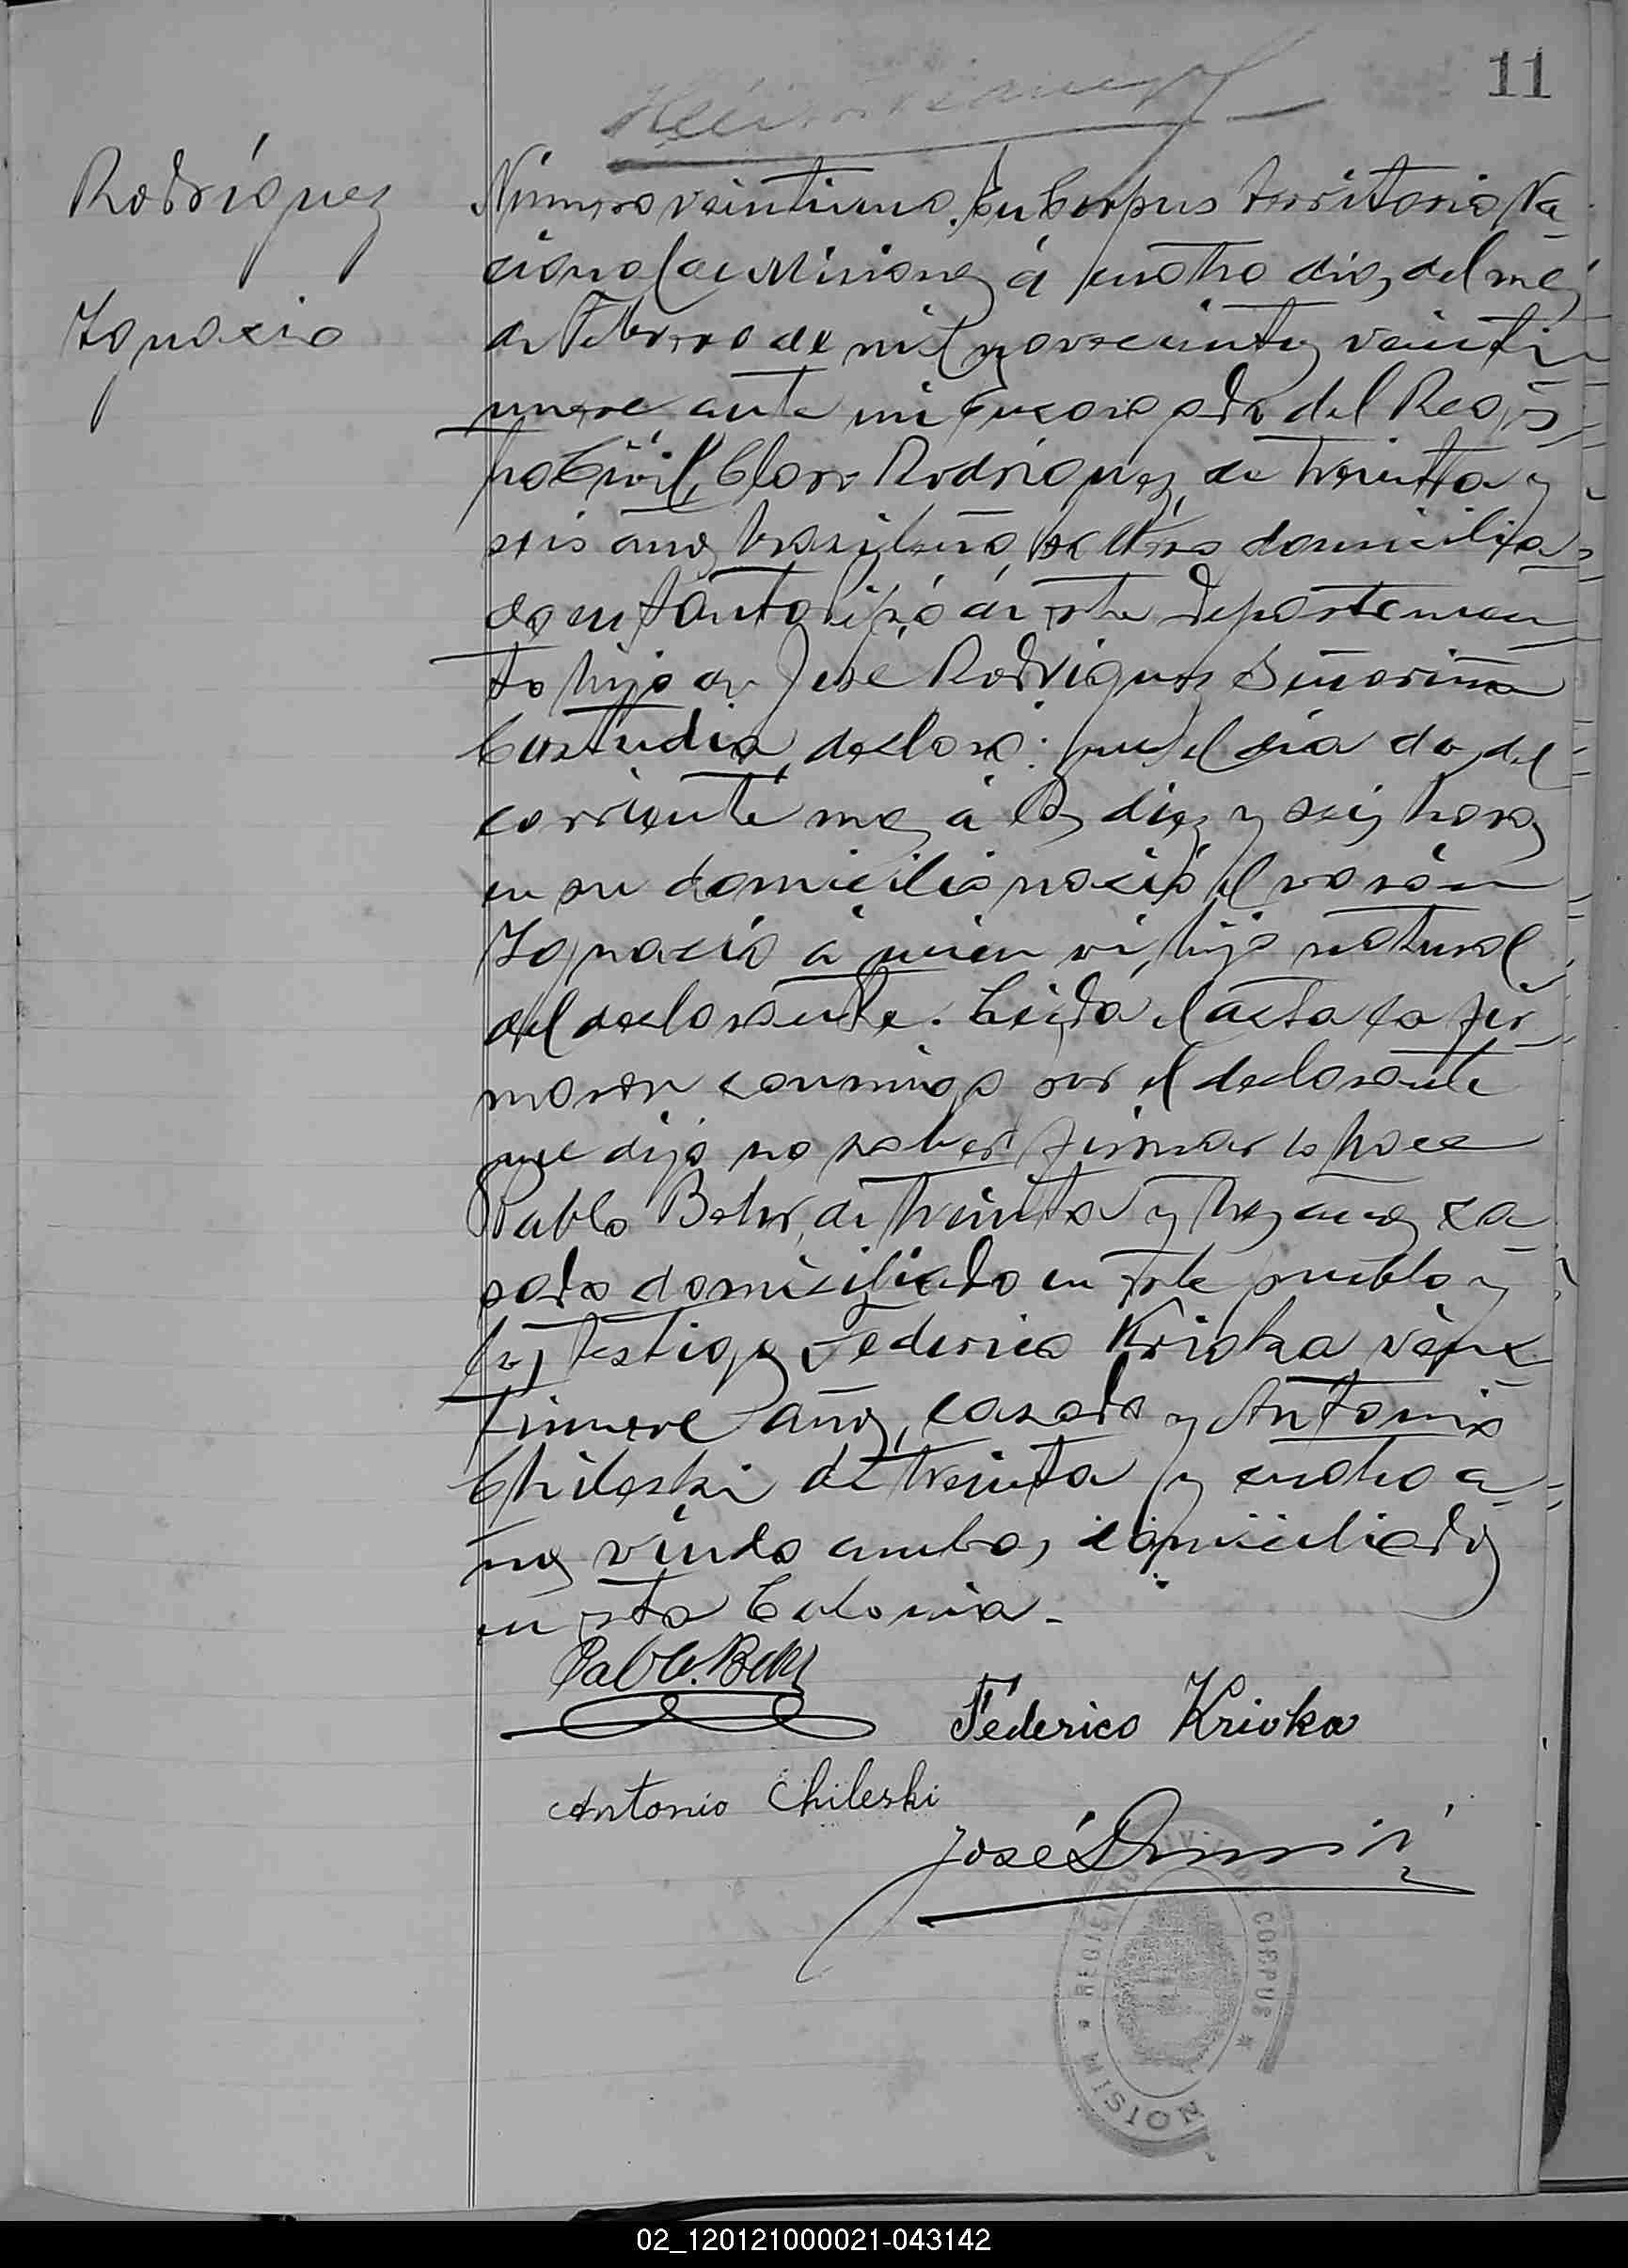 11
Rodríguez
Ignacio
Número veintiuno. En Corpus Territorio Na-
cional de Misiones á cuatro dias del mes
de Febrero de mil novecientos veinti-
nueve ante mi Encargado del Regis-
tro Civil, Claro Rodriguez, de treinta y
seis años brasilero, soltero domicilia-
do en de este departamen-
to hijo de José Rodriguez Señorina
Custudia, declaró: que el día dos del
corriente mes á las diez y seis horas
en su domicilio nació el varón
Ignacio á quien vi, hijo natural
del declarante. Leida el acta la fir-
maron conmigo por el declarante
que dijo no saber firmar lo hace
Pablo Behr, de treinta y tres años ca-
sado domiciliado en este pueblo y
los testigos Federico Krivka vein-
tinueve años, casado y Antonio
Chileski de treinta y cuatro a-
ños viudo ambos domiciliados
en esta Colonia.-
Pablo. Behr
Federico Krivka
Antonio Chileski
José
REGISTRO CIVIL DE CORPUS
MISION
02_120121000021-043142